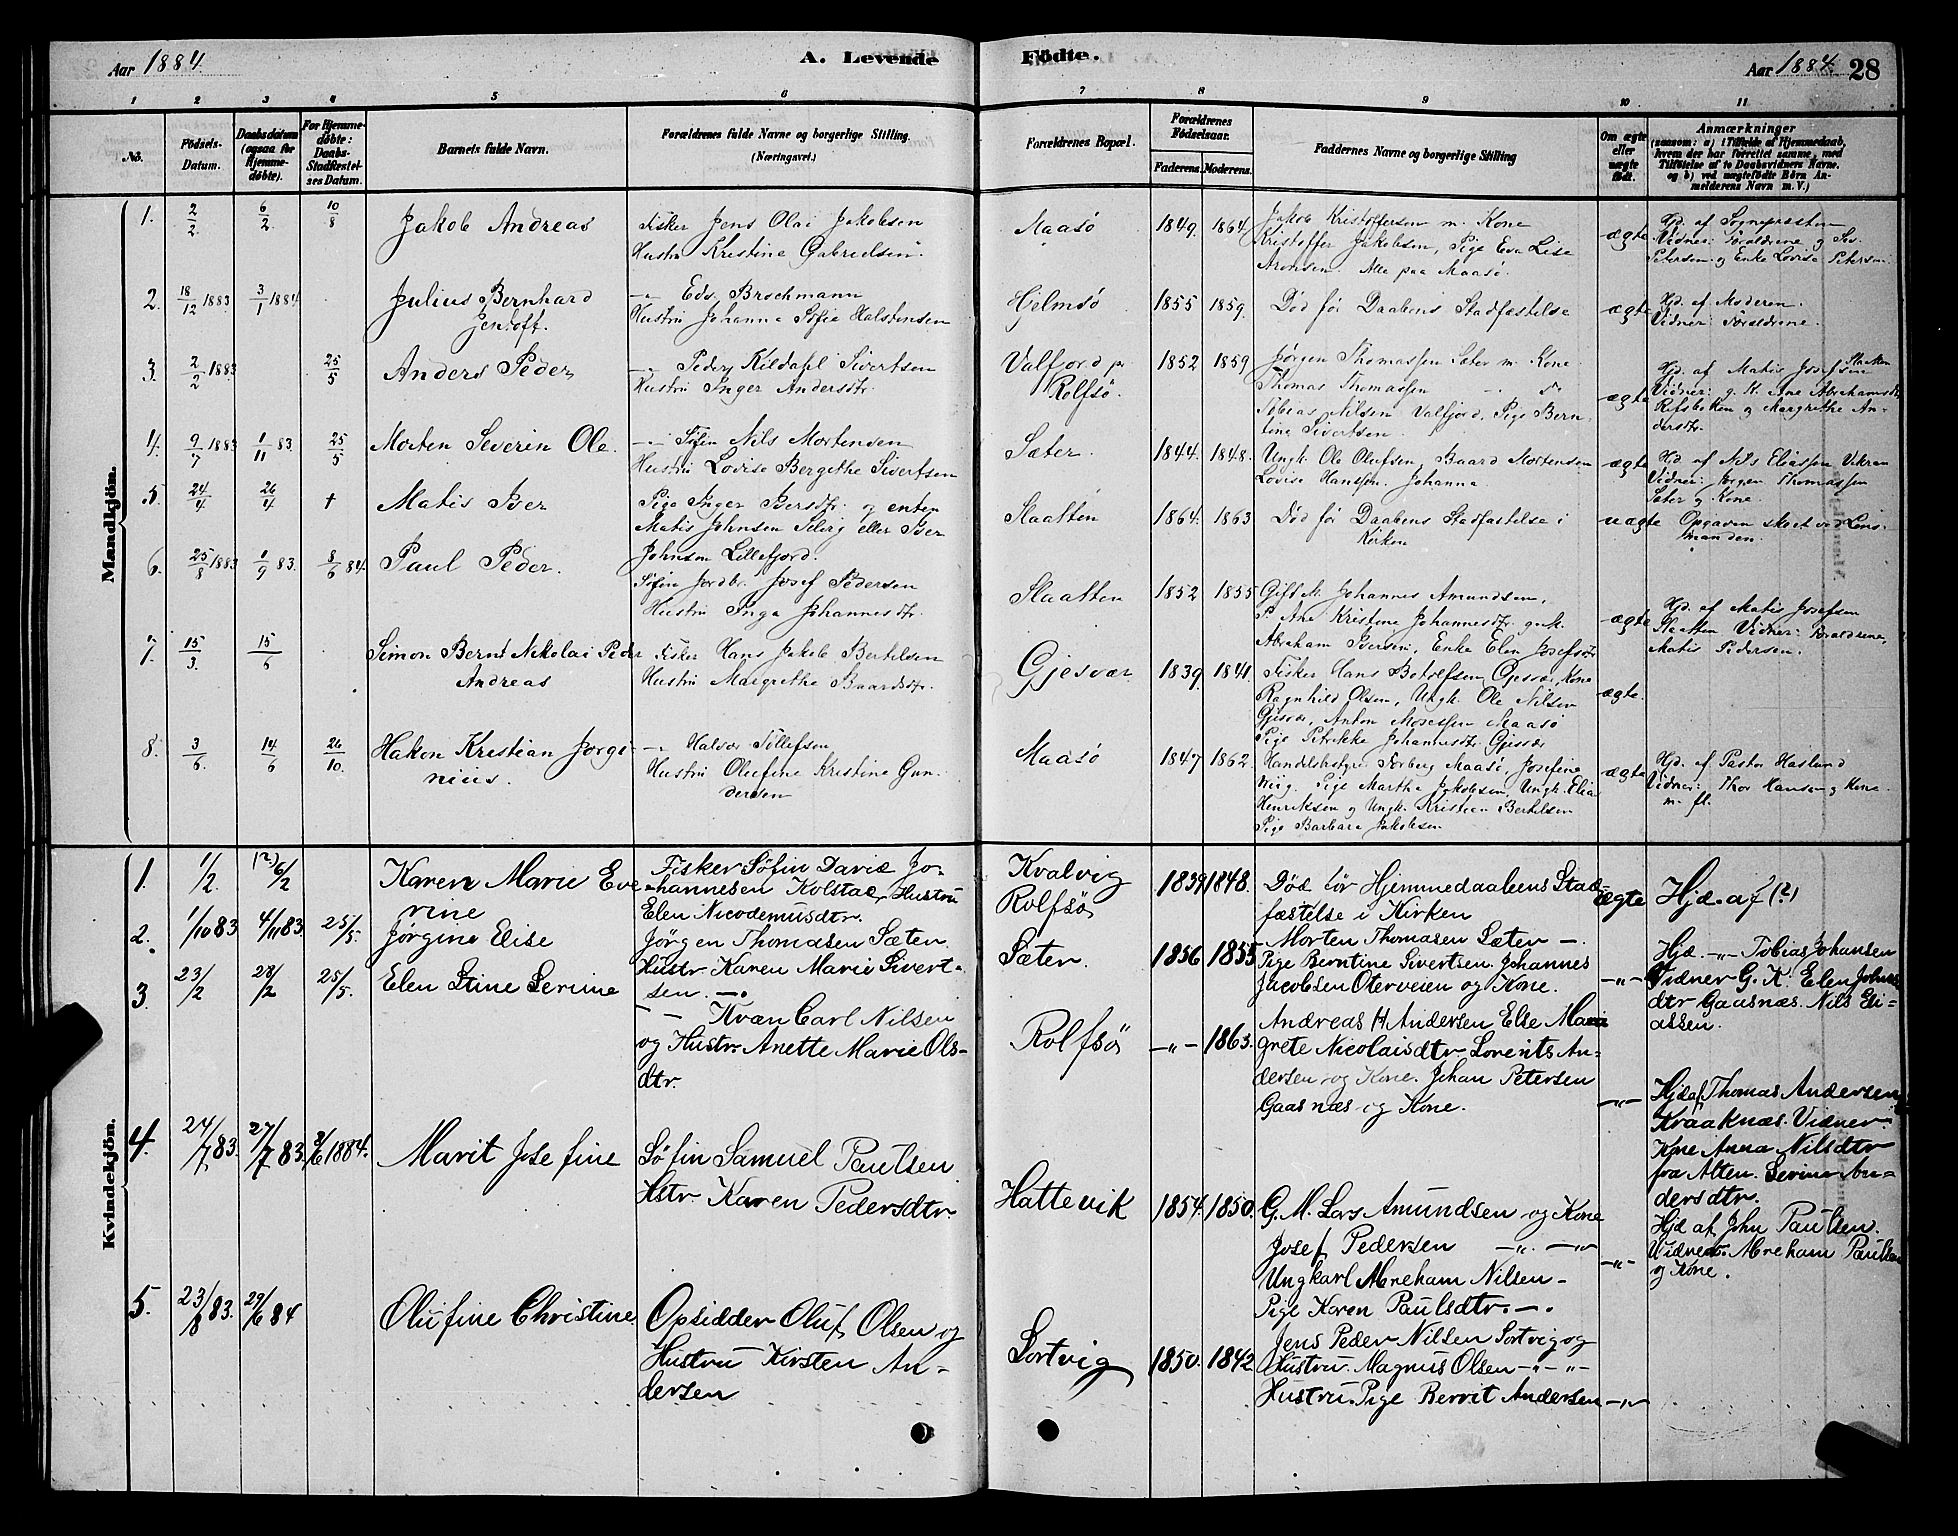 Aar 1884.
A. Levende
Födte.
Aar 1884.
28
1 2 3 4 5 6 7 8 9 10 11
No.
Födsels-Datum.
Daabsdatum (ogsaa for Hjemmedöbte).
For Hjemmedöbte: Daabs-Stadfæstelses Datum.
Barnets fulde Navn.
Forældrenes fulde Navne og borgerlige Stilling.
(Næringsvei.)
Forældrenes Bopæl.
Forældrenes Födselsaar.
Faderens. Moderens.
Faddernes Navne og borgerlige Stilling
Om ægte eller uægte födt.
Anmærkninger
(saasom: a) i Tilfælde af Hjemmedaab,
hvem der har forrettet samme, med
Tilföielse af to Daabsvidners Navne.
og b) ved uægtefödte Börn An-
melderens Navn m. V.)
Mandkjön.
1. 2/2 6/2 10/8 Jakob Andreas
Fisker Jens Olai Jakobsen
Hustru Kristine Gabrielsen.
Maasø 1849. 1864.
Jakob Kristoffersen m. Kone
Kristoffer Jakobsen, Pige Eva Lise
Aronsen. Alle paa Maasø.
ægte
Hjd. af Sognepræsten
Vidner: Forældrene, og Sev.
Petersen og Enke Lovise Petersen
2. 18/12 1883 3/1 1884 Julius Bernhard
Jentoft.
-"- Edv. Brochmann
Hustru Johanna Sofie Halstensen
Hjelmsø 1855 1859.
Død før Daabens Stadfæstelse
ægte
Hjd. af Moderen.
Vidner: Forældrene.
3. 2/2 1883 25/5 Anders Peder
-"- Peder Kildahl Sivertsen
Hustru Inger Andersdtr.
Valfjord pr
Rolfsø. 1852 1859
Jørgen Thomassen Sæter m. Kone
Thomas Thomassen -"- dr
Tobias Nilsen Valfjord, Pige Bern-
tine Sivertsen.
ægte
Hjd. af Matis Josefsen Slaatten
Vidner: g. K. Ane Abrahamsdtr
Refsbotten og Margrethe An-
dersdtr.
4. 9/7 1883 1/11 83. 25/5 Morten Severin Ole.
-"- Søfin Nils Mortensen
Hustru Lovise Bergithe Sivertsen
Sæter. 1844. 1848.
Ungk. Ole Olufsen, Baard Mortensen
Lovise Hanssen. Johanna
ægte
Hjd. af Nils Eliassen Vikran
Vidner: Jørgen Thomassen
Sæter og Kone.
5. 24/4 26/4 + Matis Iver
Pige Inger Iversdtr. og enten
Matis Johnsen Selvig eller Iver
Johnsen Lillefjord.
Slaatten 1864. 1863
Død før Daabens Stadfæstelse i
Kirken
uægte
Opgaven skeet ved Lens-
manden.
6. 25/8 1883 1/9 83. 8/6 84. Paul Peder.
Søfin Jordbr. Josef Pedersen
Hustru Inga Johannesdtr.
Slaatten 1852 1855
Gift M. Johannes Amundsen,
P. Ane Kristine Johannesdtr. g. M.
Abraham Iversen, Enke Elen Josefsdtr
ægte
Hjd. af Matis Josefsen
Slaatten Vidner: Forældrene,
Matis Pedersen.
7. 15/3. 15/6 Simon Bernt Nikolai Peder
Andreas
Fisker Hans Jakob Bertelsen
Hustru Margrethe Baardsdtr.
Gjesvær 1839. 1841.
Fisker Hans Botolfsen Gjesvær, Kone
Ragnhild Olsen, Ungk. Ole Nilsen
Gjesvær, Anton Mosessen Maasø
Pige Petrikke Johannesdtr. Gjesvær
ægte.
8. 3/6. 14/6 26/10. Hakon Kristian Jørgi-
nius.
-"- Halvor Tollefsen
Hustru Olufine Kristine Gun-
dersen
Maasø 1847 1862.
Handelsbestyrer Forberg Maasø, Josefine
Wiig. Pige Marthe Jakobsen, Ungk. Elias
Henriksen og Ungk. Kristian Bertelsen
Pige Barbara Jakobsen
ægte
Hjd. af Pastor Haslund
Vidner: Thor Hansen og Kone
m. fl.
Kvindekjön.
1. 1/2. (?) 6/2 Karen Marie Eve-
rine
Fisker Söfin David Jo-
hannesen Kolstad, Hustru
Elen Nicodemusdtr.
Kvalvig
Rolfsö 1839 1848.
Död för Hjemmedaabens Stad-
fæstelse i Kirken
ægte
Hjd. af (?)
2. 1/10 83 4/11 83. 25/5. Jörgine Elise
Jörgen Thomasen Sæter.
Hustr. Karen Marie Sivert-
sen. -.
Sæter. 1856 1855
Morten Thomasen Sæter -.
Pige Berntine Sivertsen. Johannes
Jacobsen Oterveien og Kone.
-"-
Hjd. -"- Tobias Johansen
Vidner G. K. Elen Johns
dtr Gaasnæs. Nils Eli-
assen.
3 23/2 28/2 25/5. Elen Stine Serine
- - Kvæn Carl Nilsen
og Hustr. Anette Marie Ols-
dtr.
Rolfsö -"- 1863.
Andreas H Andersen Else Mar
grete Nicolaisdtr Lorents An-
dersen og Kone. Johan Petersen
Gaasnæs og Kone.
-"-
Hjd af Thomas Andersen
Kraaknæs. Vidner
Kone Anna Nilsdtr
fra Alten. Serine An-
dersdtr.
4. 24/7 83. 27/7 83. 2/6 1884. Marit Josefine
Söfin Samuel Paulsen
Hstr Karen Pedersdtr.
Hattevik 1854. 1850.
G. M. Lars Amundsen og Kone
Josef Pedersen -"- -"-
Ungkarl Abreham Nilsen -
Pige Karen Paulsdtr. -.
-"-
Hjd af John Paulsen.
Vidner. Abreham Paulsen
og Kone.
5. 23/8 83. 29/6 84 Olufine Christine
Opsidder Oluf Olsen og
Hustru Kirsten An-
dersen
Sortvig 1850. 1842
Jens Peder Nilsen Sortvig og
Hustru. Magnus Olsen -"- -"-
Hustru. Pige Berrit Andersen
-"-